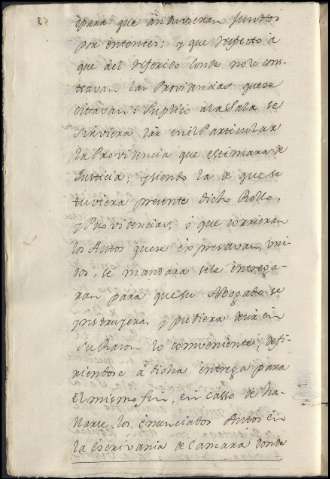 epara que anduviesen Juntos
por entonces; y que respecto a
que del referido conde no le cons
tavan las Provicencias que se
citavan: Suplicó a la Sala se
sirviera en el Particular
la Providencia que estimara de
Justicia; siendo la de que se
tuviera presente dicho Rollo,
y Providencias, ó que corrieran
los Autos que se expresavan, uni
dos, se mandara se le entrega
ran para que su Abogado se
instruyera, y pudiera decir en
su Razon lo conveniente; defi
riendose á dicha entrega para
el mismo fin, en casso de ha
llarse los enunciados Autos en
la Escrivania de Camara donde